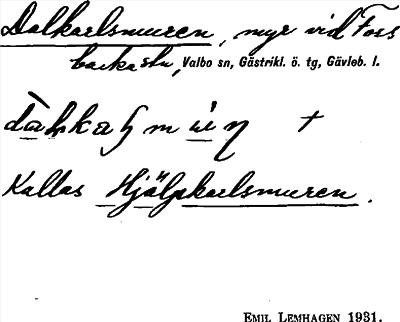 Dalkarlsmuren, myr vid Foss
backastu, Valbo sn, Gästrikl. ö. tg, Gävleb. l.
Kallas Hjälpkarlsmuren.
EMIL LEMHAGEN 1931.